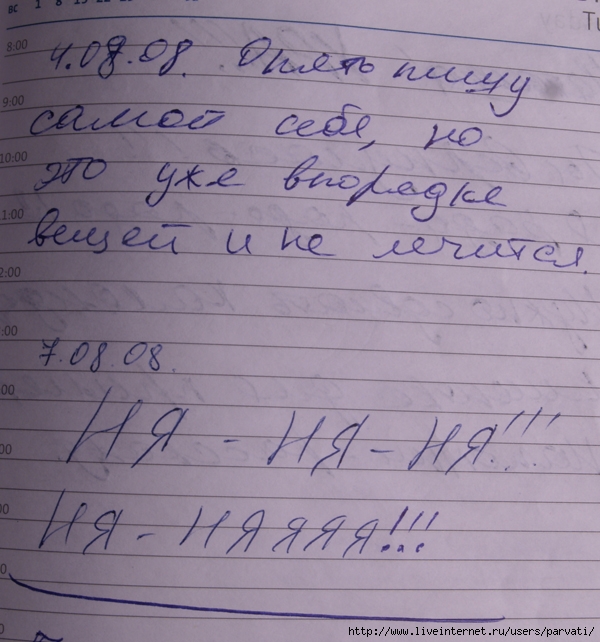 вс 1 8
Tu
8:00 4.08.08. Опять пишу
9:00 самой себе, но
10:00 это уже впорядке
1:00 вещей и не лечится.
2:00
:00 7.08.08.
:00 НЯ - НЯ - НЯ!!!
:00
00 НЯ - НЯЯЯЯ!!!
0
http://www.liveinternet.ru/users/parvati/